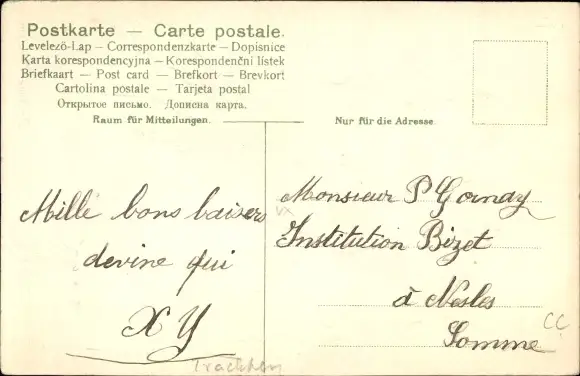 Postkarte — Carte postale.
Levelező-Lap — Correspondenzkarte — Dopisnice
Karta korespondencyjna — Korespondenční lístek
Briefkaart — Post card — Brefkort — Brevkort
Cartolina postale — Tarjeta postal
Открытое письмо. Дописна карта.
Raum für Mitteilungen.
Nur für die Adresse.
Mille bons baisers
devine qui
XY
Monsieur P Gornay
Institution Bizet
à Nesles
Somme
CC